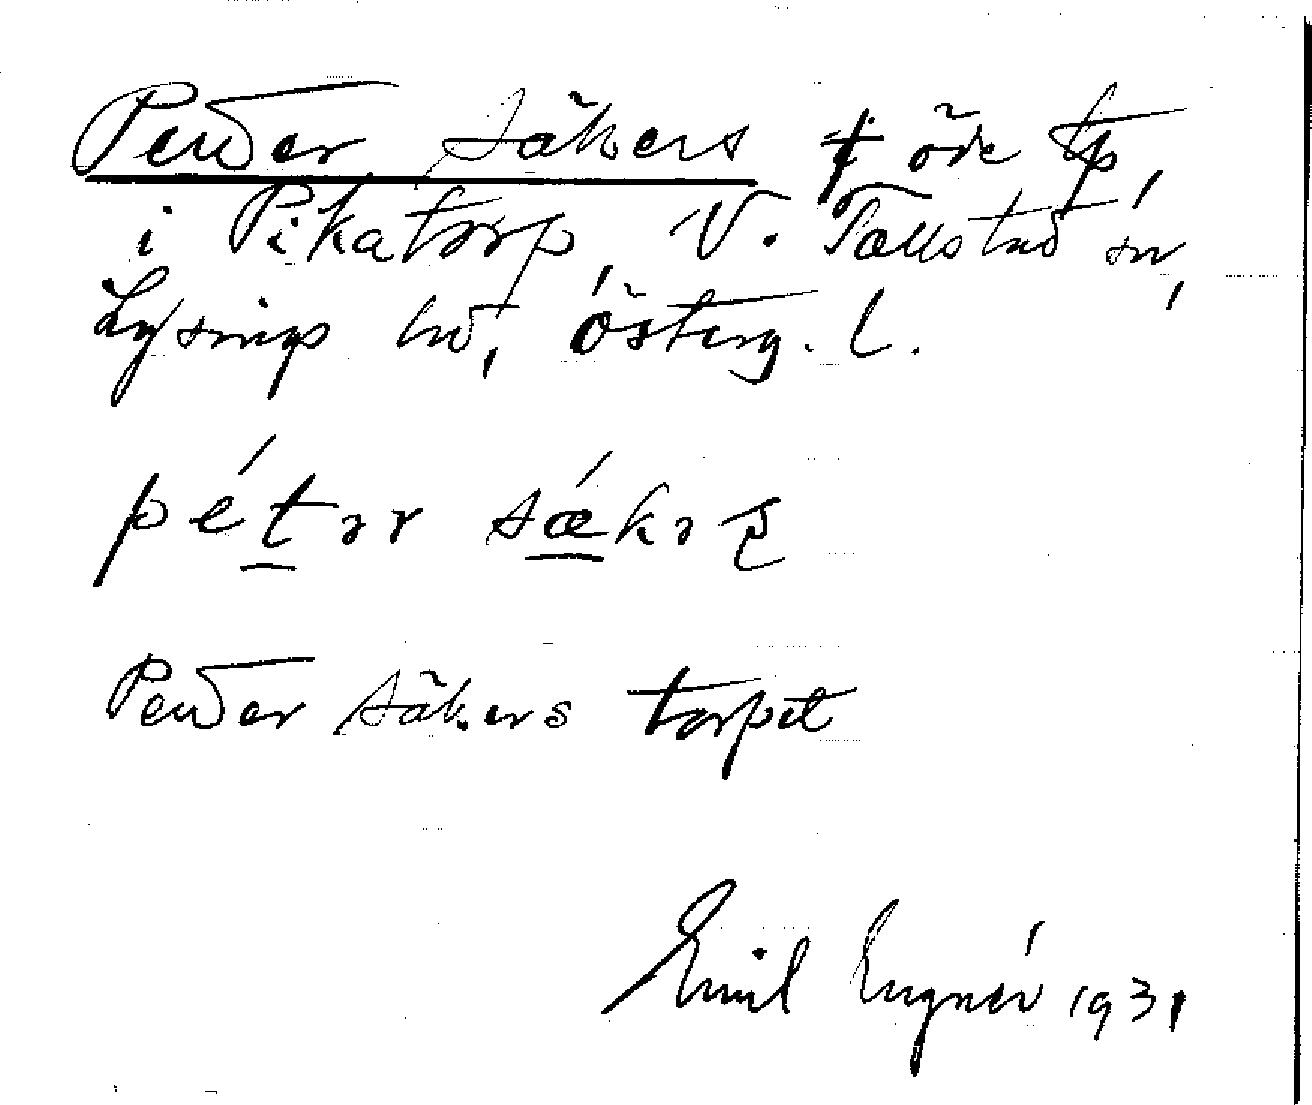 Petter Säkers † öde tp,
i Pikatorp, V. Tollstad sn,
Lysings hd, Österg. l.
pétər sǽkəʂ
Petter Säkers torpet
Emil Engnér 1931